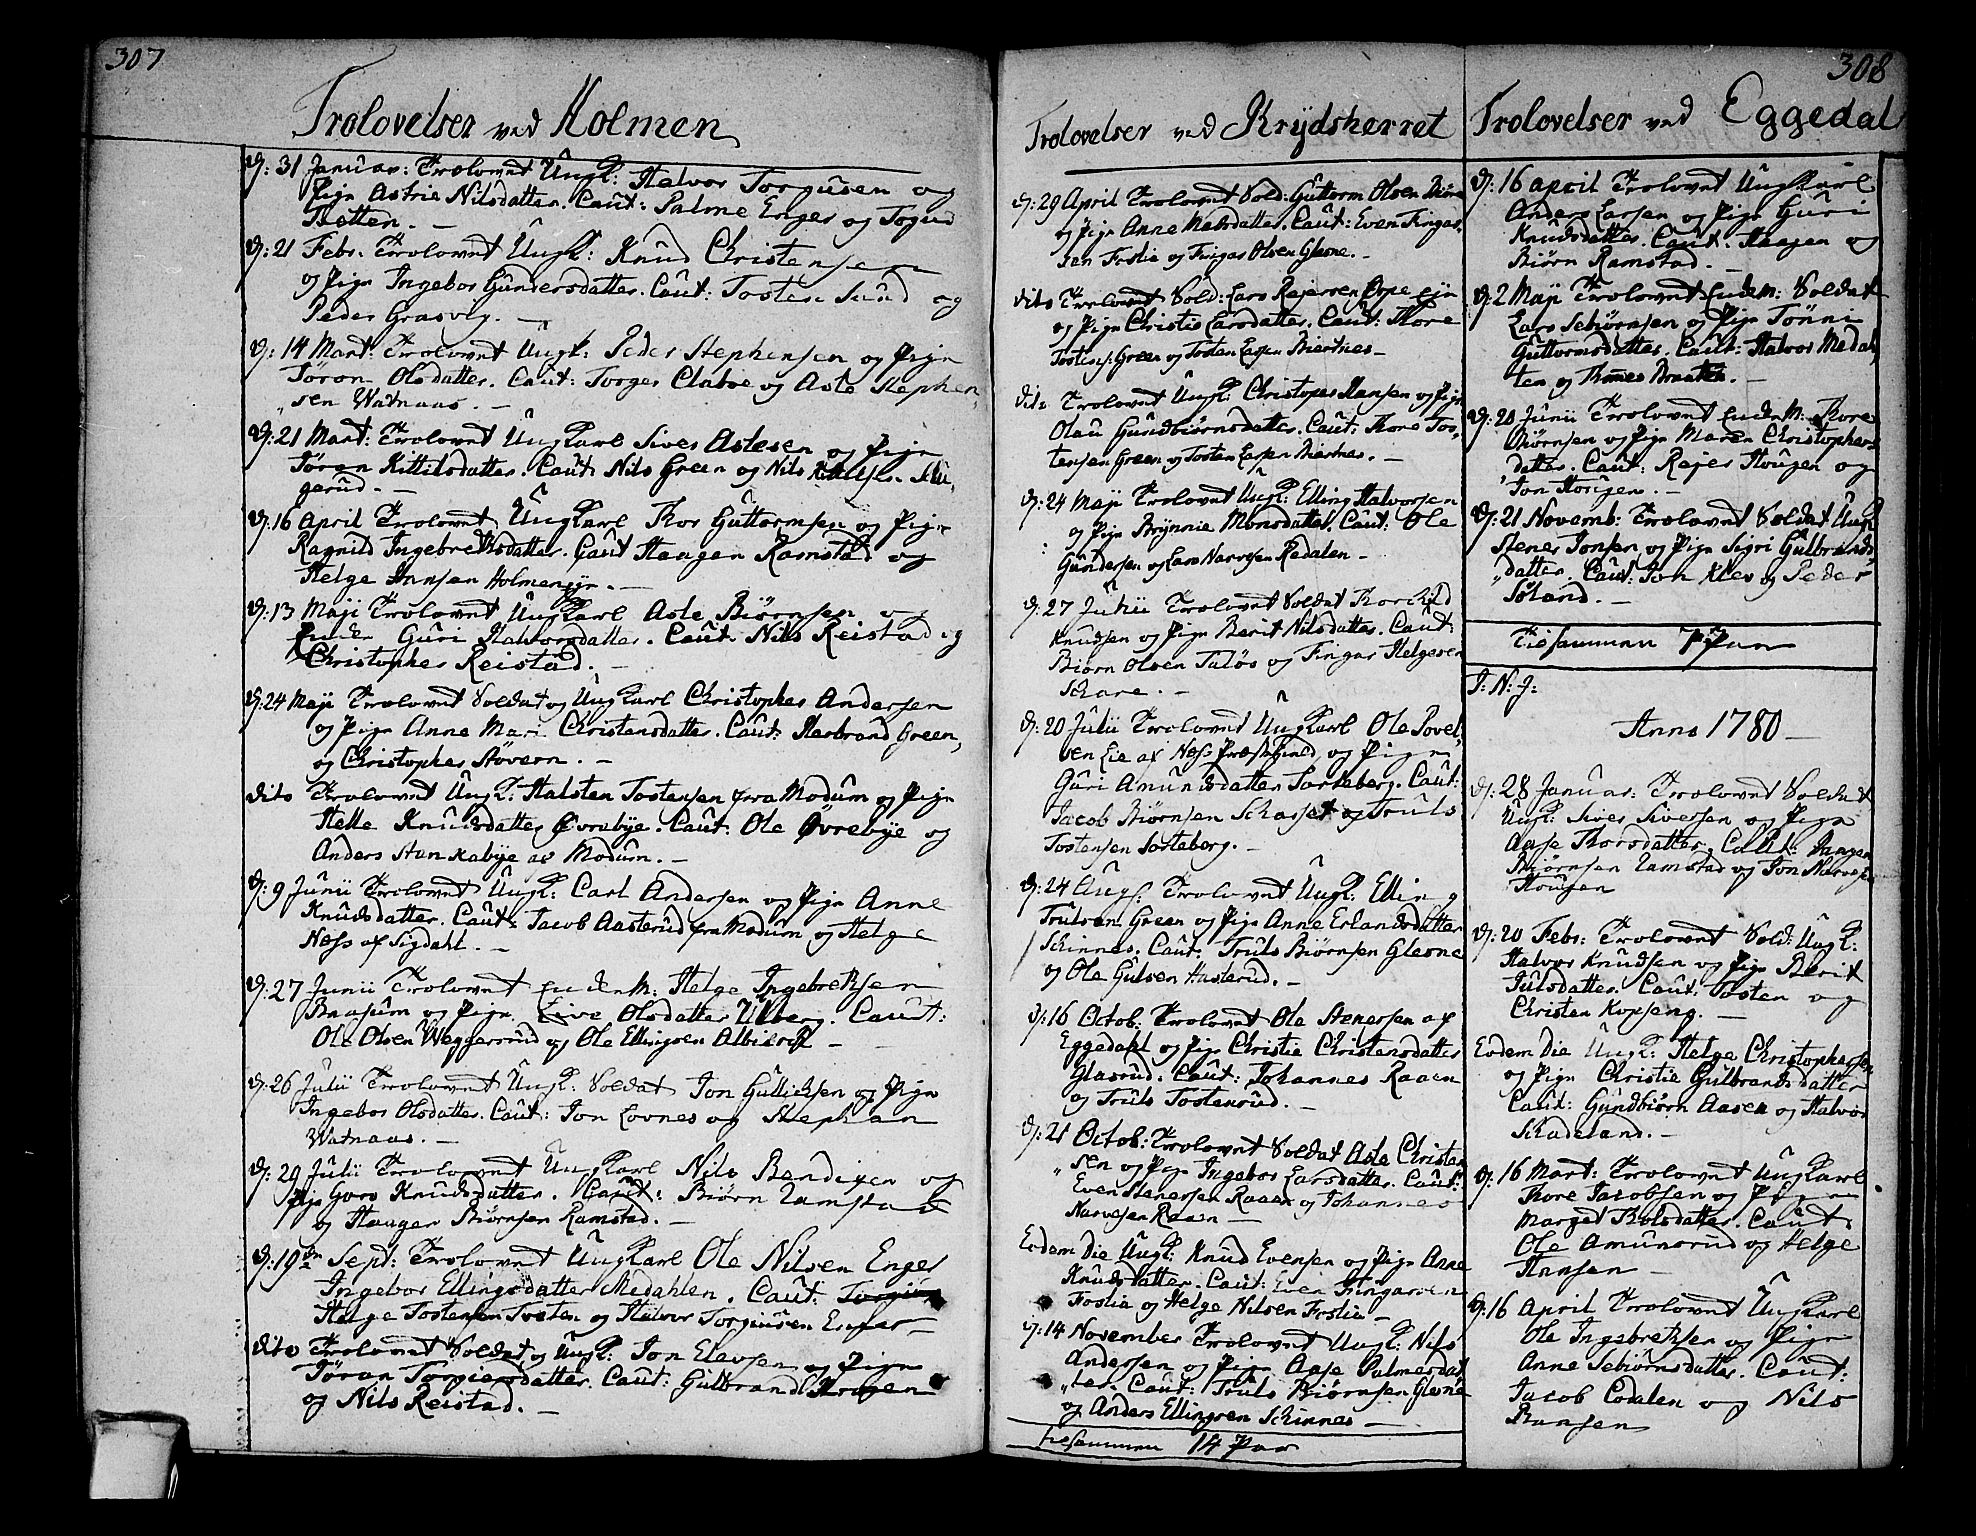 307
Trolovelser ved Holmen
D: 31 Januar: Trolovet Ungk: Halvor Torgusen og
Pige Astrie Nilsdatter. Caut: Palme Enger og Togud
Tvetten.
D: 21 Febr. Trolovet Ungk: Knud Christensen
og Pige Ingebor Gundersdatter. Caut: Tosten Lund og
Peder Grasvig.
D: 14 Mart: Trolovet Ungk: Peder Stephensen og Pige
Tøron Olsdatter. Caut: Torger Clabve og Asle Stephen
„sen Watnaas.
D: 21 Mart: Trolovet Ungkarl Siver Aslesen og Pige
Jøran Kittilsdatter. Caut: Nils Green og Nils
gerud.
D: 16 April Trolovet Ungkarl Thor Guttormsen og Pige
Ragnild Ingebretsdatter. Caut Haagen Ramstad og
Helge Hansen Holmenejje.
D: 13 Maji Trolovet Ungkarl Asle Biørnsen og
Guri Halvorsdatter. Caut: Nils Reistad og
Christopher Reistad.
D: 24 Maji Trolovet Soldat og Ungkarl Christopher Andersen
og Pige Anne Mari Christensdatter. Caut: Herbrand Green,
og Christopher Støvern.
dito Trolovet Ungk: Halsten Tostensen fra Modum og Pige
Helle Knudsdatter Øvrebye. Caut: Ole Øvrebye og
Anders Stenkabye av Modum.
D: 9 Junii Trolovet Ungk: Carl Andersen og Pige Anne
Knudsdatter. Caut: Jacob Aasterud fra Modum og Helge
Ness af Sigdahl.
D: 27 Junii Trolovet Enckem: Helge Ingebretsen
Braasum og Pige Live Olsdatter Ulberg. Caut:
Ole Olsen Weggerrud og Ole Ellingsen Albierg
D: 26 Julii Trolovet Ungk: Soldat Jon Gullicksen og Pige
Ingebor Olsdatter. Caut: Jon Lovnes og Stephan
Watnaas.
D: 29 Julii Trolovet Ungkarl Nils Bendixen og
Pige Goro Knudsdatter. Caut: Biørn Ramstad
og Haagen Biørnsen Ramstad.
D: 19de Sept: Trolovet Ungkarl Ole Nilsen Enger
Ingebor Ellingsdatter Medahlen. Caut:
Helge Tostensen Tveten og Halvor Torgiusen Enger
dito Trolovet Soldat og Ungk: Jon Elevsen og Pige
Jøran Torgiersdatter. Caut: Gulbrand Hougen
og Nils Reistad.
308
Trolovelser ved Krydsherret
D: 29 April Trolovet Sold: Guttorm Olsen
og Pige Anne Madsdatter. Caut: Even Fingar,
sen Froslie og Fingar Olsen Glesne.
dito Trolovet Sold: Lars Rejersen
og Pige Christie Larsdatter. Caut: Thore
Tostens: Green og Tosten Larsen Biertnes
dito Trolovet Ungk: Christopher Hansen og Pige
Olau Gundbiørnsdatter. Caut: Thore Tos„
tensen Green og Tosten Larsen Biertnes.
D: 24 Maji Trolovet Ungk: Elling Halvorsen
og Pige Brynnie Monsdatter. Caut: Ole
Gundersen og Lars Narvesen Redalen
D: 27 Julii Trolovet Soldat Thorkild
Knudsen og Pige Berit Nilsdatter. Caut:
Biørn Olsen Taløs og Fingar Helgesen
Skare.
D: 20 Julii Trolovet Ungkarl Ole Povel„
sen Lie af Ness Præstegield og Pige
Guri Amundsdatter Sorteberg. Caut:
Jacob Biørnsen og Truls
Tostensen Sorteberg.
D: 24 Aug: Trolovet Ungk: Elling
Trulsen Green og Pige Anne Erlandsdatter
Skinnes. Caut: Truls Biørnsen Glesne
og Ole Gulsen Hasterud.
D: 16 Octob: Trolovet Ole Stenersen af
Eggedahl og Pige Christie Christensdatter
Glasrud. Caut: Johannes Raaen
og Truls Tostensrud.
D: 21 Octob: Trolovet Soldat Asle Christen
„sen og Pige Ingebor Larsdatter. Caut:
Even Stenersen Raaen og Johannes
Narvesen Raaen
Eodem die Ungk: Knud Evensen og Pige Anne
Knudsdatter. Caut: Even Fingarsen
Froslia og Helge Nilsen Froslia
D: 14 November Trolovet Ungk: Nils
Andersen og Pige Aase Palmesdat
„ter. Caut: Truls Biørnsen Glesne
og Anders Ellingsen Skinnes
tilsammen 14 Par
Trolovelser ved Eggedal
D: 16 April Trolovet Ungkarl
Anders Larsen og Pige Guri
Knudsdatter. Caut: Haagen og
Biørn Ramstad.
D: 2 Maji Trolovet Enckem: Soldat
Lars Sebiørnsen og Pige Tønni
Guttormsdatter. Caut: Halvor Medal,
ten og Braaten.
D: 20 Junii Trolovet Enckem: Thore
Biørnsen og Pige Maren Christophers
datter. Caut: Rejer Hougen og
Jon Hougen.
D: 21 Novemb: Trolovet Soldat Ungk
Stener Jonsen og Pige Sigri Gulbrands
„datter. Caut: Jon Klev og Peder
Søland.
Tilsammen 7 Par
I: N: J:
Anno 1780
D: 28 Januar: Trolovet Soldat
Ungk: Siver Siversen og Pige
Aase Thorsdatter. Caut: Haagen
Biørnsen Ramstad og Jon Narvesen
Hougen
D: 20 Febr: Trolovet Sold: Ungk:
Halvor Knudsen og Pige Berit
Julsdatter. Caut: Tosten og
Christen Kopseng.
Eodem Die Ungk: Helge Christophersen
og Pige Christie Gulbrandsdatter
Caut: Gundbiørn Aasen og Halvor
Skadeland.
D: 16 Mart: Trolovet Ungkarl
Thore Jacobsen og Pige
Marget Tholsdatter. Caut:
Ole Amunsrud og Helge
Hansen
D: 16 April Trolovet Ungkarl
Ole Ingebretsen og Pige
Anne Sebiørnsdatter. Caut:
Jacob Lodalen og Nils
Bansen